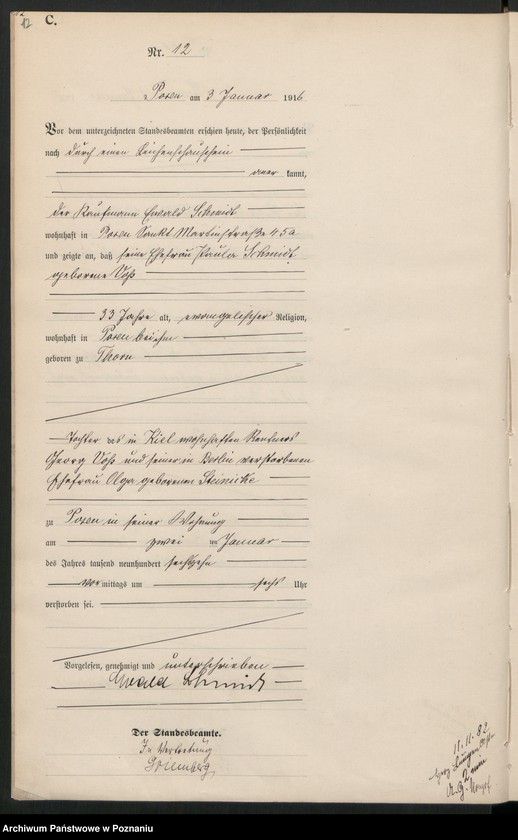 12
C.
Nr. 12
Posen am 3 Januar 1916
Vor dem unterzeichneten Standesbeamten erschien heute, der Persönlichkeit
nach durch einen Leichenschauschein
aner kannt,
der Kaufmann Ewald Schmidt
wohnhaft in Posen Sankt Martinstraße 45a
und zeigte an, daß seine Ehefrau Paula Schmidt
geborene Voß
33 Jahre alt, evangelischer Religion,
wohnhaft in Posen bei ihm
geboren zu Thorn
Tochter des in Kiel wohnhaften Rentners
Georg Voß und seiner in Berlin verstorbenen
Ehefrau Olga geborenen Steinicke
zu Posen in seiner Wohnung
am zwei ten Januar
des Jahres tausend neunhundert sechzehn
vor mittags um sechs Uhr
verstorben sei.
Vorgelesen, genehmigt und unterschrieben
Ewald Schmidt
Der Standesbeamte.
In Vertretung
11.11.82
Archiwum Państwowe w Poznaniu